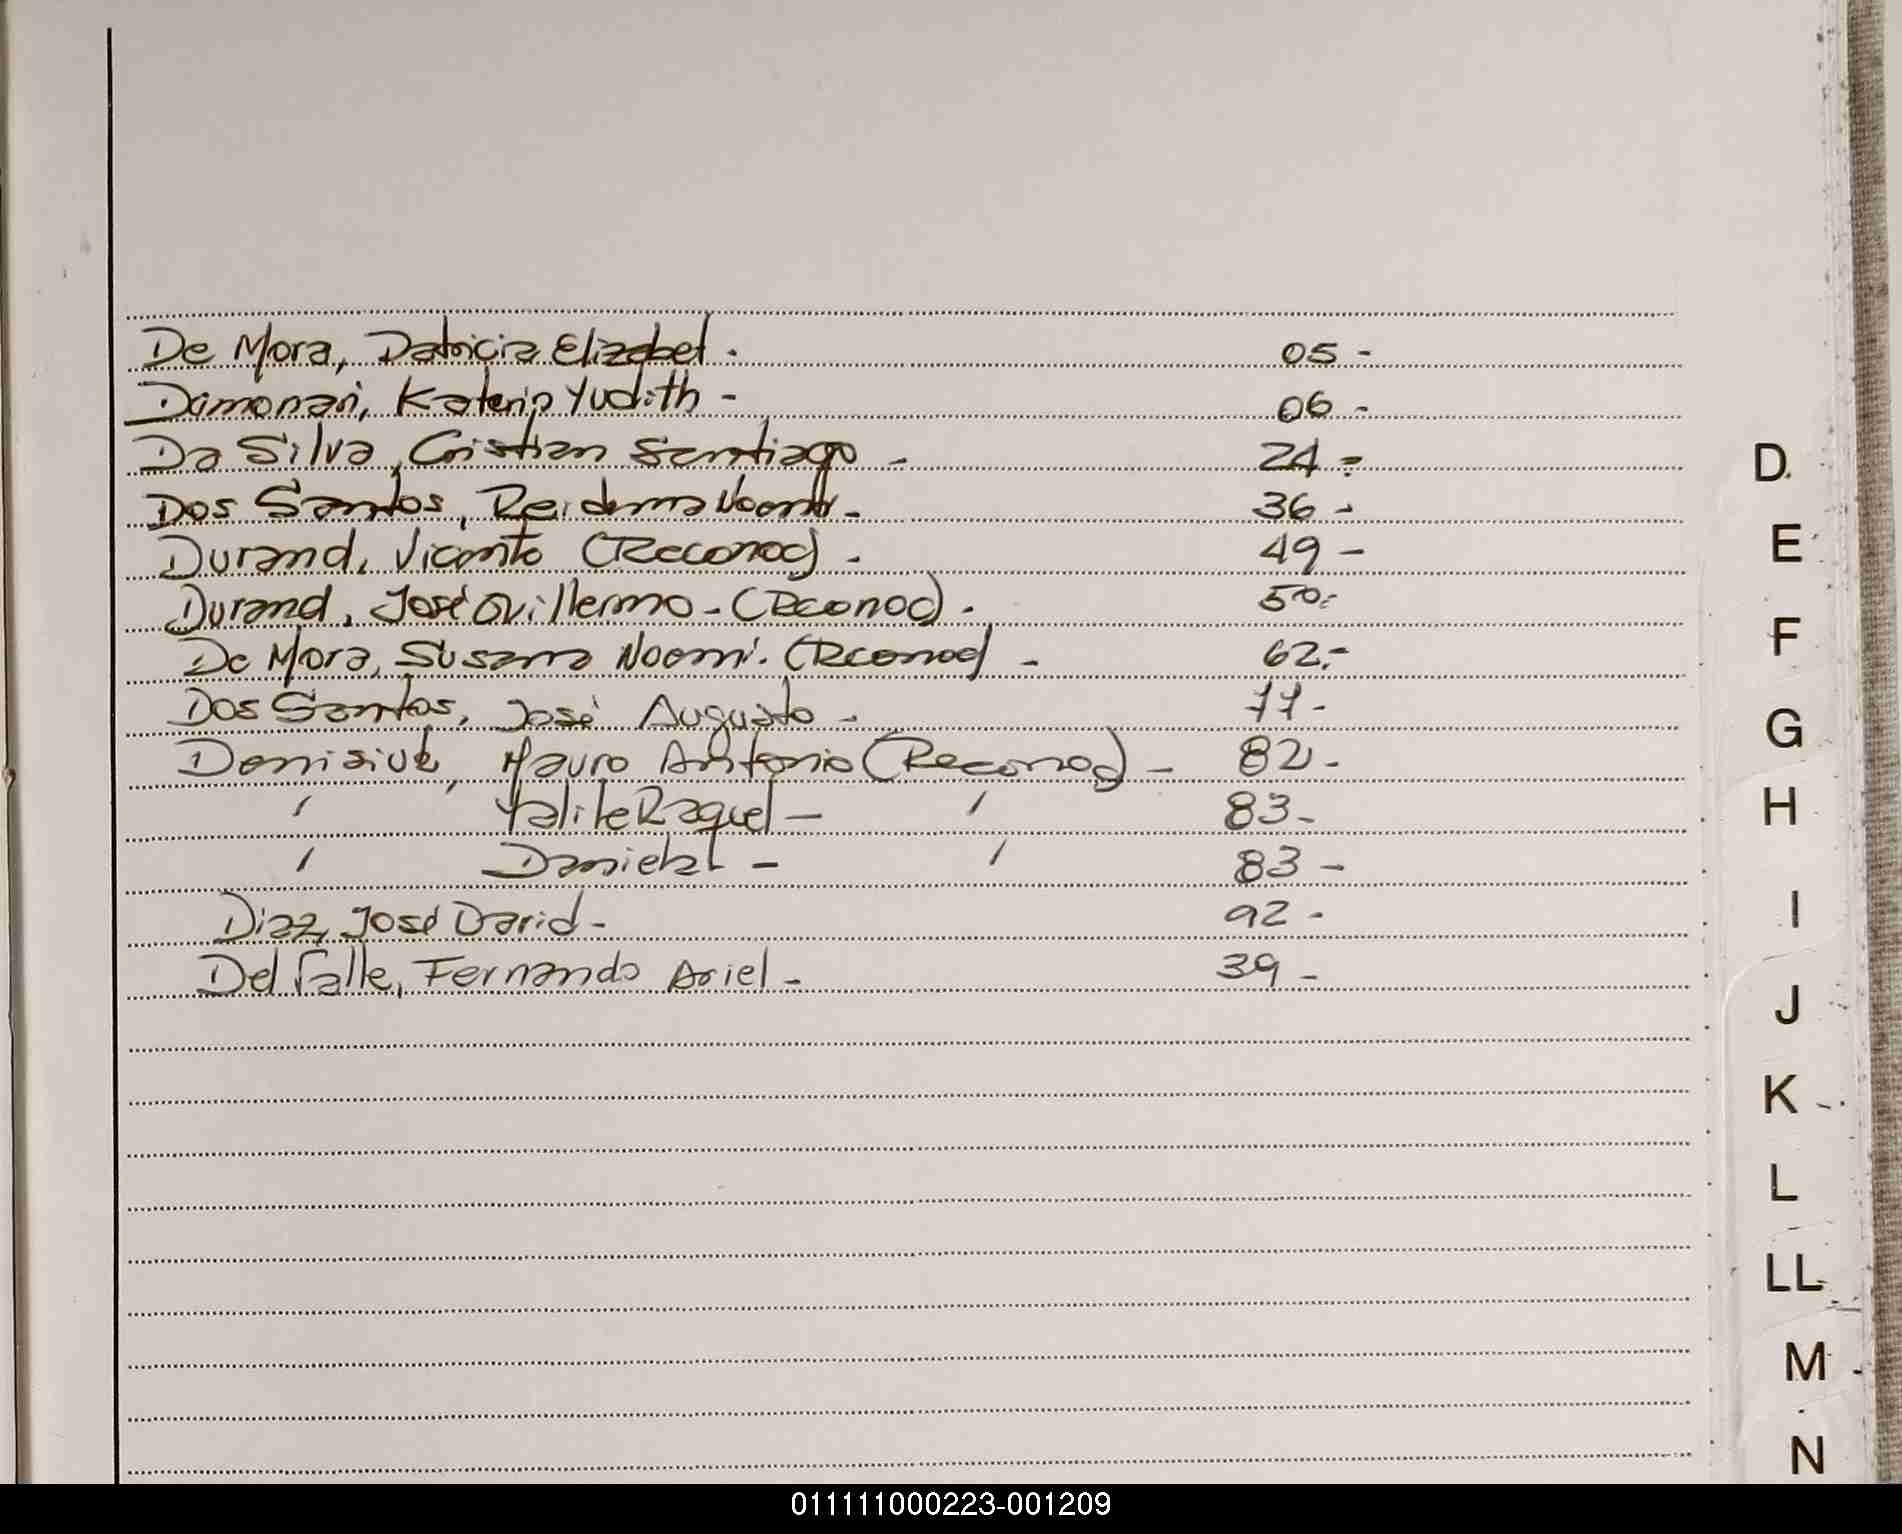 De Mora, Patricia Elizabet. 05-
Damonari, Katerin Yudith - 06-
Da Silva, Cristian Santiago - 24-
Dos Santos, Noemi - 36-
Durand, Vicente (Reconoc) - 49-
Durand, José Guillermo - (Reconoc). 50-
De Mora, Susana Noemi. (Reconoc) - 62.-
Dos Santos, José Augusto - 77-
Denisiuk, Mauro Antonio (Reconoc) - 82-
" Raquel - " 83-
" Daniel - " 83-
Diaz, José David - 92-
Del Valle, Fernando Ariel - 39-
D
E
F
G
H
I
J
K
L
LL
M
N
011111000223-001209